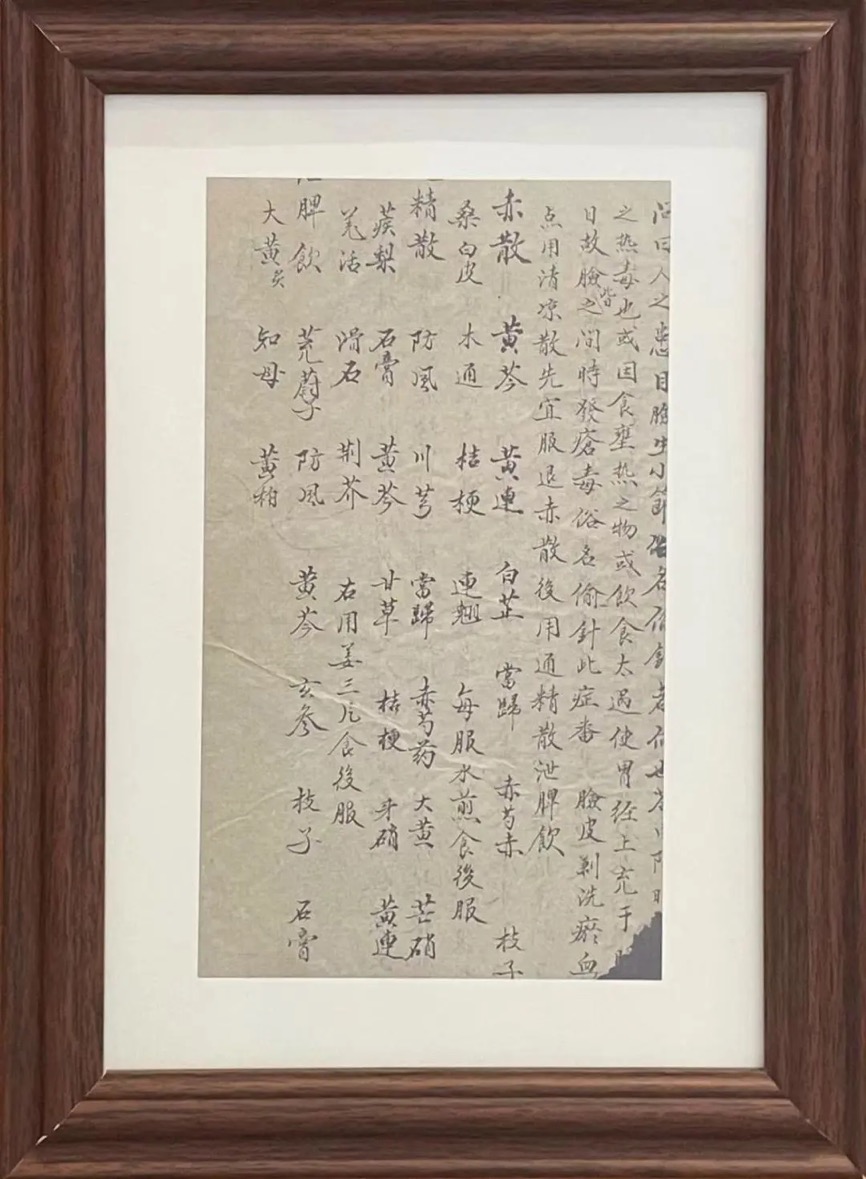 问曰人之患目胞生小節俗名偷針者何也答曰陽明
之热毒也或因食壅热之物或飲食太過使胃经上充于
目故臉眥之间時發瘡毒俗名偷針此症番臉皮剥洗瘀血
点用清凉散先宜服退赤散後用通精散泄脾飲
赤散 黄芩 黄連 白芷 當歸 赤芍赤 枝子
桑白皮 木通 桔梗 連翘 每服水煎食後服
精散 防风 川芎 當歸 赤芍药 大黄 芒硝
蒺梨 石膏 黄芩 甘草 桔梗 牙硝 黄連
羌活 滑石 荆芥 右用姜三片食後服
脾飲 茺蔚子 防风 黄芩 玄参 枝子 石膏
大黄 知母 黄柏